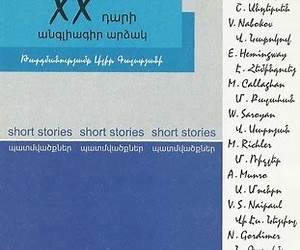 XX դարի
անգլիագիր արձակ
Թարգմանությամբ Լիլիթ
short stories short stories short stories
պատմվածքներ պատմվածքներ պատմվածքներ
Շ. Անդերսն
V. Nabokov
Վ. Նաբոկով
E. Hemingway
Է. Հեմինգուեյ
M. Callaghan
Մ. Քալահան
W. Saroyan
Վ. Սարոյան
M. Richler
Մ. Ռիչլեր
A. Munro
Ա. Մունրո
V. S. Naipaul
N. Gordimer